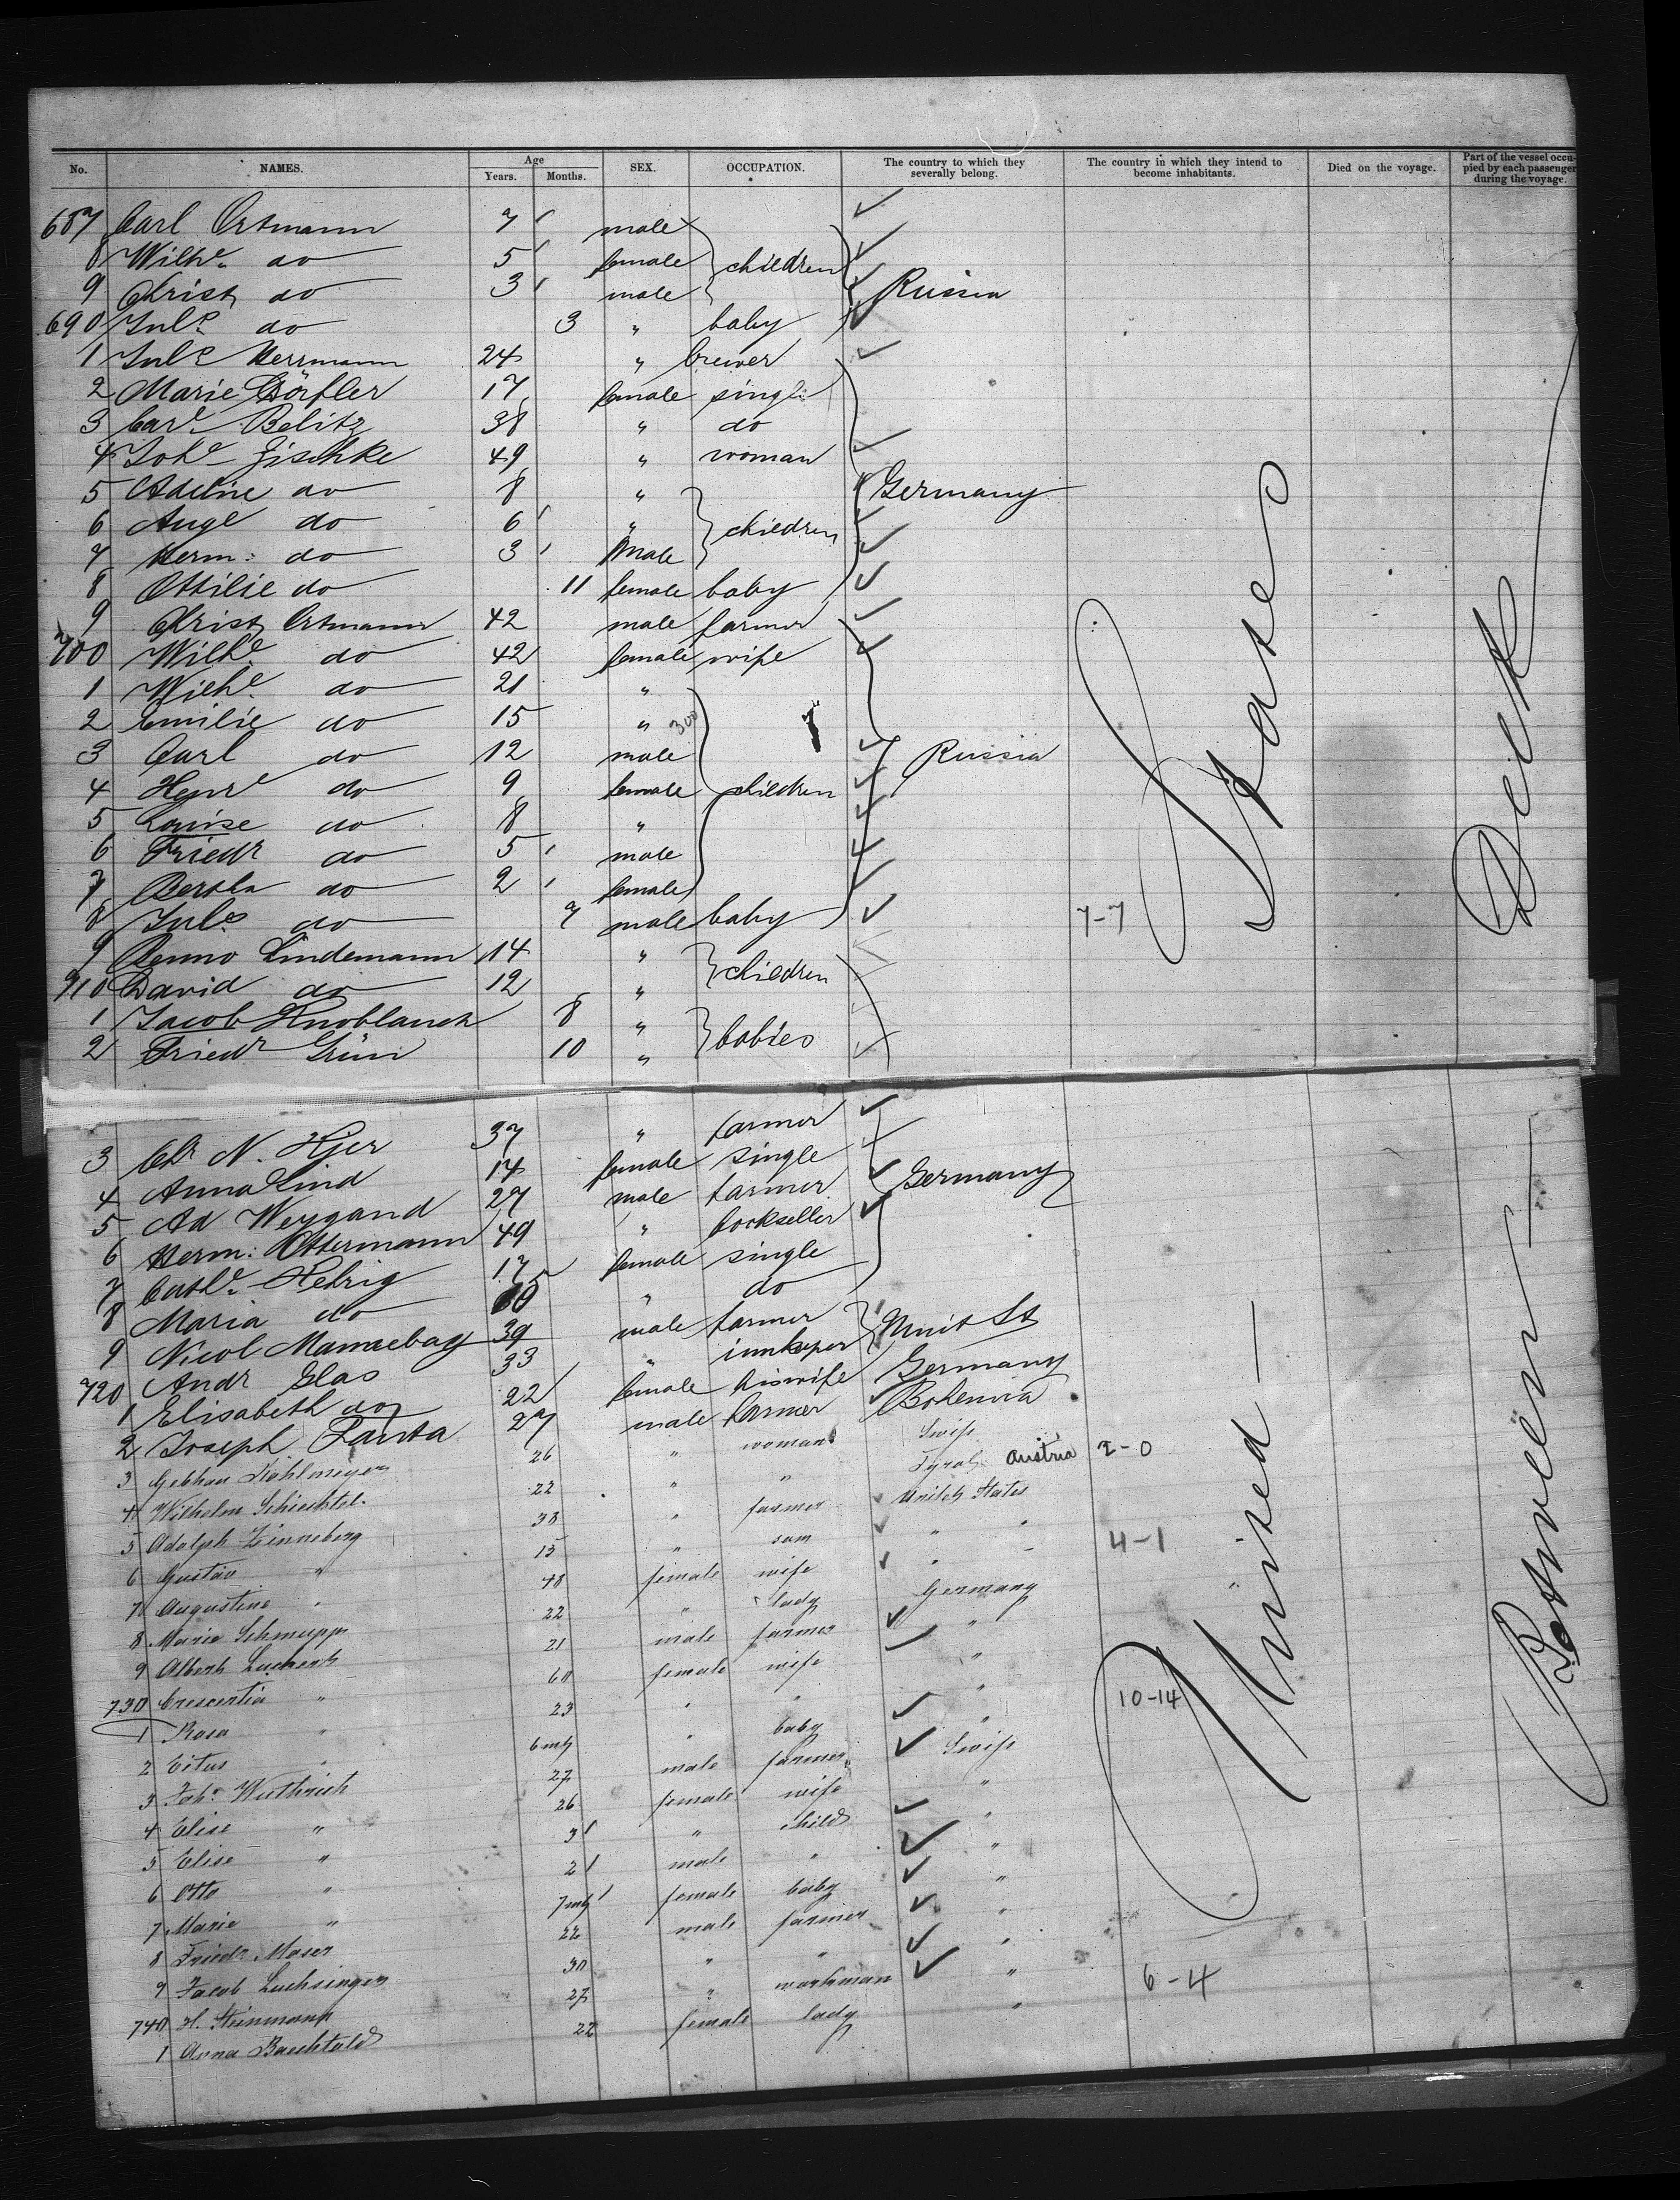 No. NAMES. Age Years. Months. SEX. OCCUPATION. The country to which they severally belong. The country in which they intend to become inhabitants. Died on the voyage. Part of the vessel occupied by each passenger during the voyage.
687 Carl Ortmann 7 male
8 Wilhe. do 5 female children
9 Christ do 3 male Russia
690 Juls do 3 " baby
1 Juls Herrmann 24 " brewer
2 Marie 17 female single
3 Care. Belitz 38 " do
4 Johe Zischke 49 " woman
5 Adeline do 8 " Germany
6 Auge do 6 " children
7 Herm: do 3 male
8 Ottilie do 11 female baby
9 Christ Ortmann 42 male farmer
700 Wilhe do 42 female wife
1 Wilhe do 21 "
2 Emilie do 15 " 300
3 Carl do 12 male Russia
4 Henre do 9 female children
5 Louise do 8 "
6 Friedr do 5 male
7 Bertha do 2 female
8 Juls do 7 male baby 7-7
9 Benno Lindemann 14 " children
710 David do 12 "
1 Jacob Knoblauch 8 " babies
2 Friedr Grün 10 "
3 Chr N. Hjer 37 " farmer
4 Anna Lind 14 female single
5 Ad Weygand 27 male farmer Germany
6 Herm: Ottermann 49 " bookseller
7 Cathe. Helrig 17 female single
8 Maria do " do
9 Nicol 39 male farmer Unit St
720 Andr Glas 33 " innkeper
1 Elisabeth do 22 female his wife Germany
2 Joseph Fanta 27 male farmer Bohemia
3 Gebhan 26 " woman Swiss
4 Wilhelm Schiechtel. 22 " " Tyrol Austria 2-0
5 Adolph Zinneberg 38 " farmer United States
6 Gustav " 15 " sam " "
7 Augustine " 48 female wife " " 4-1
8 Marie Schnupp 22 " lady Germany
9 Albert 21 male farmer "
730 Crescentia " 60 female wife "
1 Rosa " 23 " " "
2 Vitus " 6 mts " baby "
3 Johs Wüthrich 27 male farmer Swiss
4 Elise " 26 female wife "
5 Elise " 3 " child "
6 Otto " 2 male " "
7 Marie " 7 mts female baby "
8 Friedr Moser 22 male farmer "
9 Jacob Luchsinger 30 " " "
740 H. Steinmann 27 " workman "
1 Anna Baechtold 22 female lady "
10-14
6-4
States
United
Deck
Between